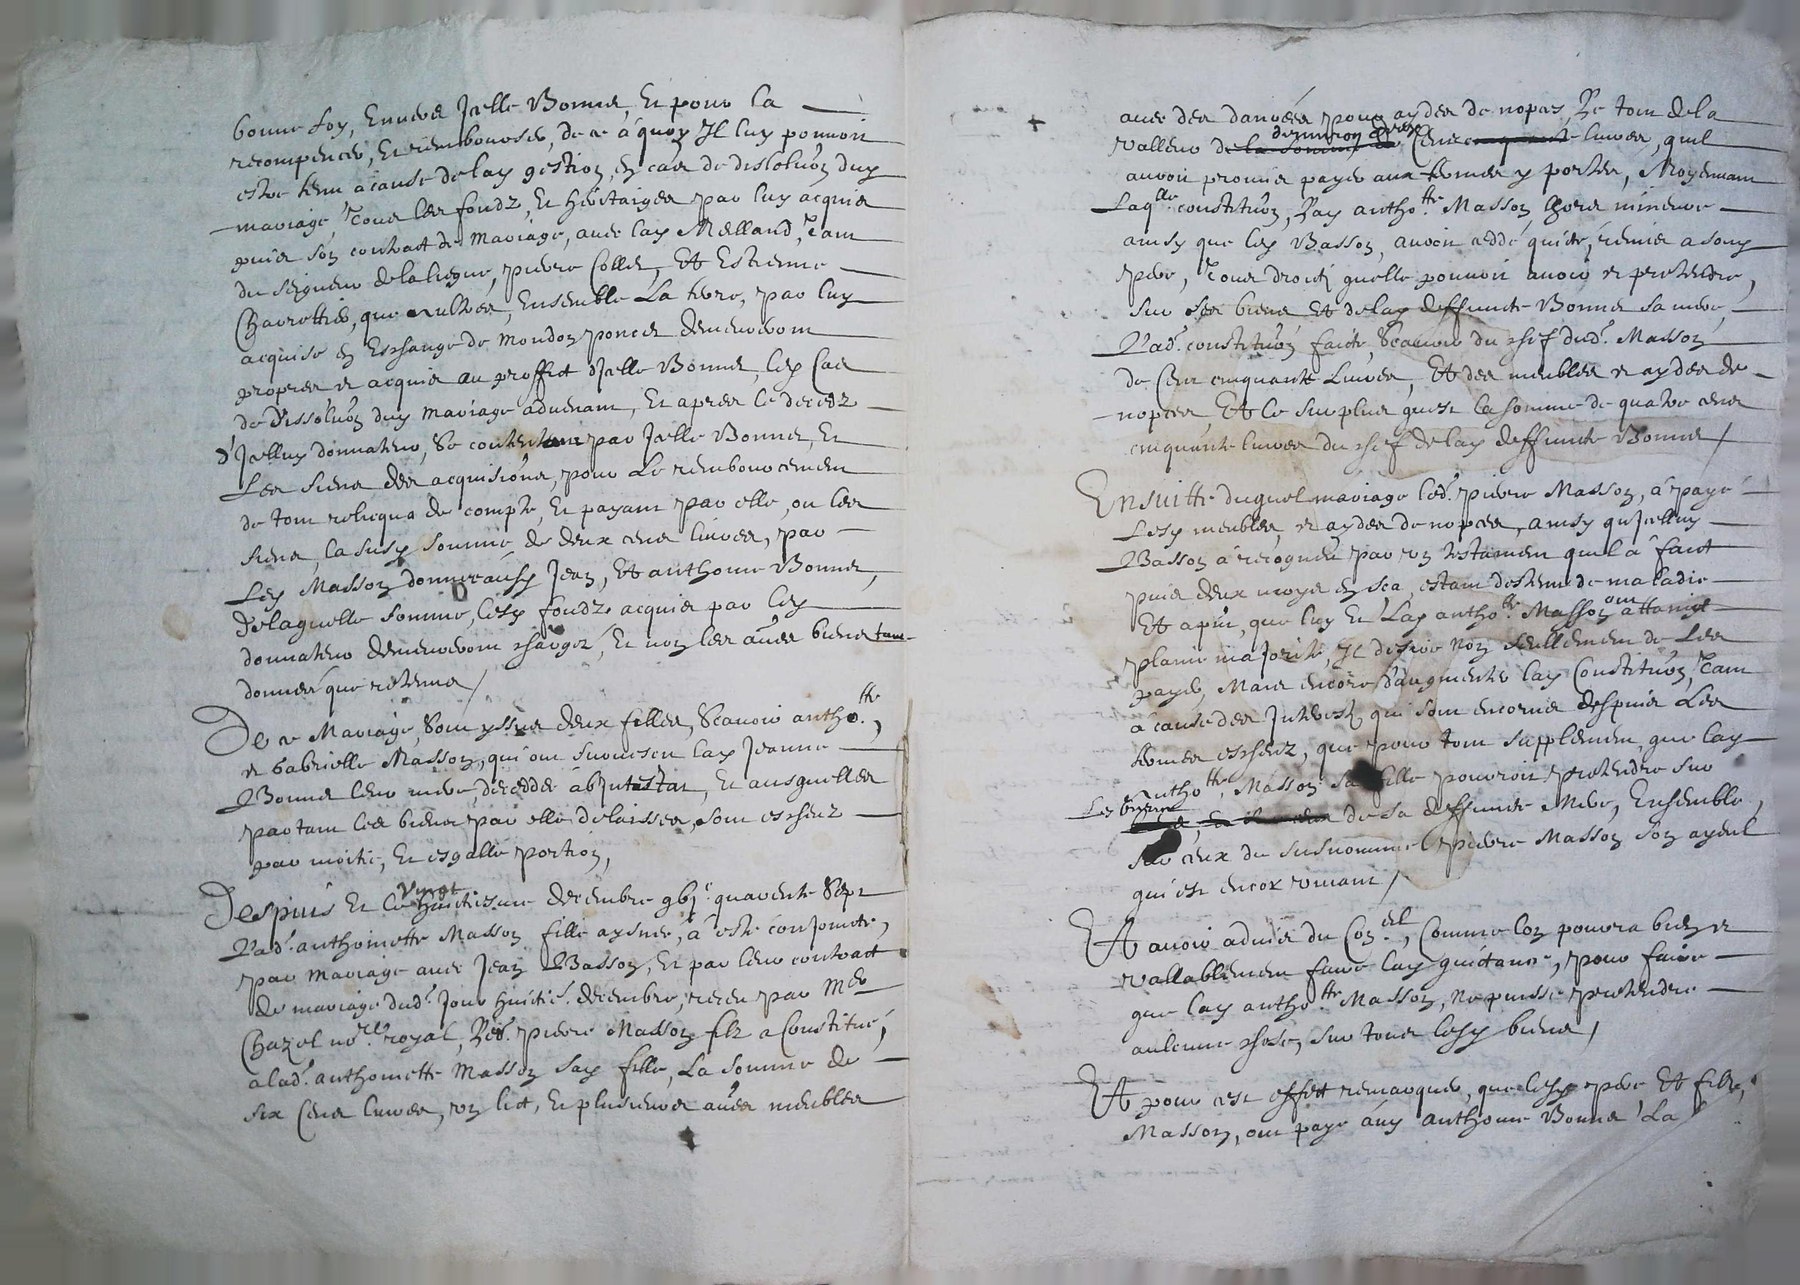 bonne foy, Envers Jcelle Bonnet, Et pour la
recompencer, Et rembourser, de ce à quoy Il luy pouvoit
estre tenu à cause de lad gestion, En cas de dissoluon dud
mariage, Tous les fondz, Et heritaiges par luy acquis
puis son contract de Mariage, avec lad Melland, Tant
du Seigneur de la liegue, pierre Collet, Et Estienne
Charrettier, que aultres, Ensemble La terre, par luy
acquise En Eschange de Mondon poncet demeureront
propres et acquis au proffict d'Jcelle Bonnet, led Cas
de Dissoluon dud Mariage advenant, Et apres le decedz
d'Jcelluy donnateur, Se contentant par Jcelle Bonnet, Et
Les siens des acquisitions, pour Le remboursement
de tout relicqua de compte, Et payant par elle, ou les
siens, la susd somme de deux cens livres, par
Led Masson donnee ausd Jean, Et anthoine Bonnet,
De laquelle somme, lesd fondz acquis par led
donnateur demeureront chargez, Et non les aues biens tant
donnés que retenus /
De ce Mariage, Sont yssues deux filles, Scavoir antho.tte,
et Gabrielle Masson, qui ont survescu lad Jeanne
Bonnet leur mere, decedée abJntestat, Et ausquelles
partant les biens par elle delaissez, sont escheuz
par moitié, Et esgalle portion,
Despuis Et le vingt huictiesme decembre gbjc quarente Sept
Lad. anthoinette Masson fille aysnee, à esté conjoincte,
par mariage avec Jean Basson, Et par leur contract
de mariage dud. Jour huictie. decembre, receu par Me
Chazel nore. royal, Led. pierre Masson filz a Constitué,
a lad. anthoinette Masson sad fille, La somme de
six Cens livres, un lict, Et plusieurs aues meubles
avec des danrées pour aydes de nopces, Le tout de la
valleur de la somme de d'environ deux Cens cinquante livres, quil
auroit promis payer aux termes y portés, Moyennant
Laqlle constituon, Lad antho.tte Masson lhors mineure
ainsy que led Basson, auroit ceddé quicté, remis a sond
pere, Tous droictz quelle pouvoit avoir et pretendre,
sur ses biens Et de lad deffuncte Bonnet sa mere,
Lad. constituon faicte, Scavoir du chef dud. Masson
de Cent cinquante Livres, Et des meubles et aydes de
nopces Et le surplus quest la somme de quatre cens
cinquante livres du chef de lad deffuncte Bonnet /
Ensuitte duquel mariage led. pierre Masson, à payé
Lesd meubles, et aydes de nopces, ainsy qu'Jcelluy
Basson à recogneu par son testament quil à faict
puis deux moys En ça, estant destenu de maladie
Et apnt, que luy Et Lad antho.tte Masson ont attainct
plaine majorité, Il desire non seullement de Les
payer, Mais encore d'augmenter lad Constituon, Tant
à cause des Jnterestz qui sont encourus despuis Les
termes escheuz, que pour tout supplement, que lad
Antho.tte Masson sa fille pourroit pretendre sur
Les biens de sa deffuncte Mere, Ensemble,
sur ceux du susnommé pierre Masson son ayeul
qui est encor vivant /
Et avoir advis du Conel, Comme lon pourra bien et
vallablement faire lad quictance, pour faire
que lad antho.tte Masson, ne puisse pretendre
aulcune chose, sur tous lesd biens /
Et pour cest effect remarquer, que lesd pere Et filz,
Masson, ont payé aud anthoine Bonnet La